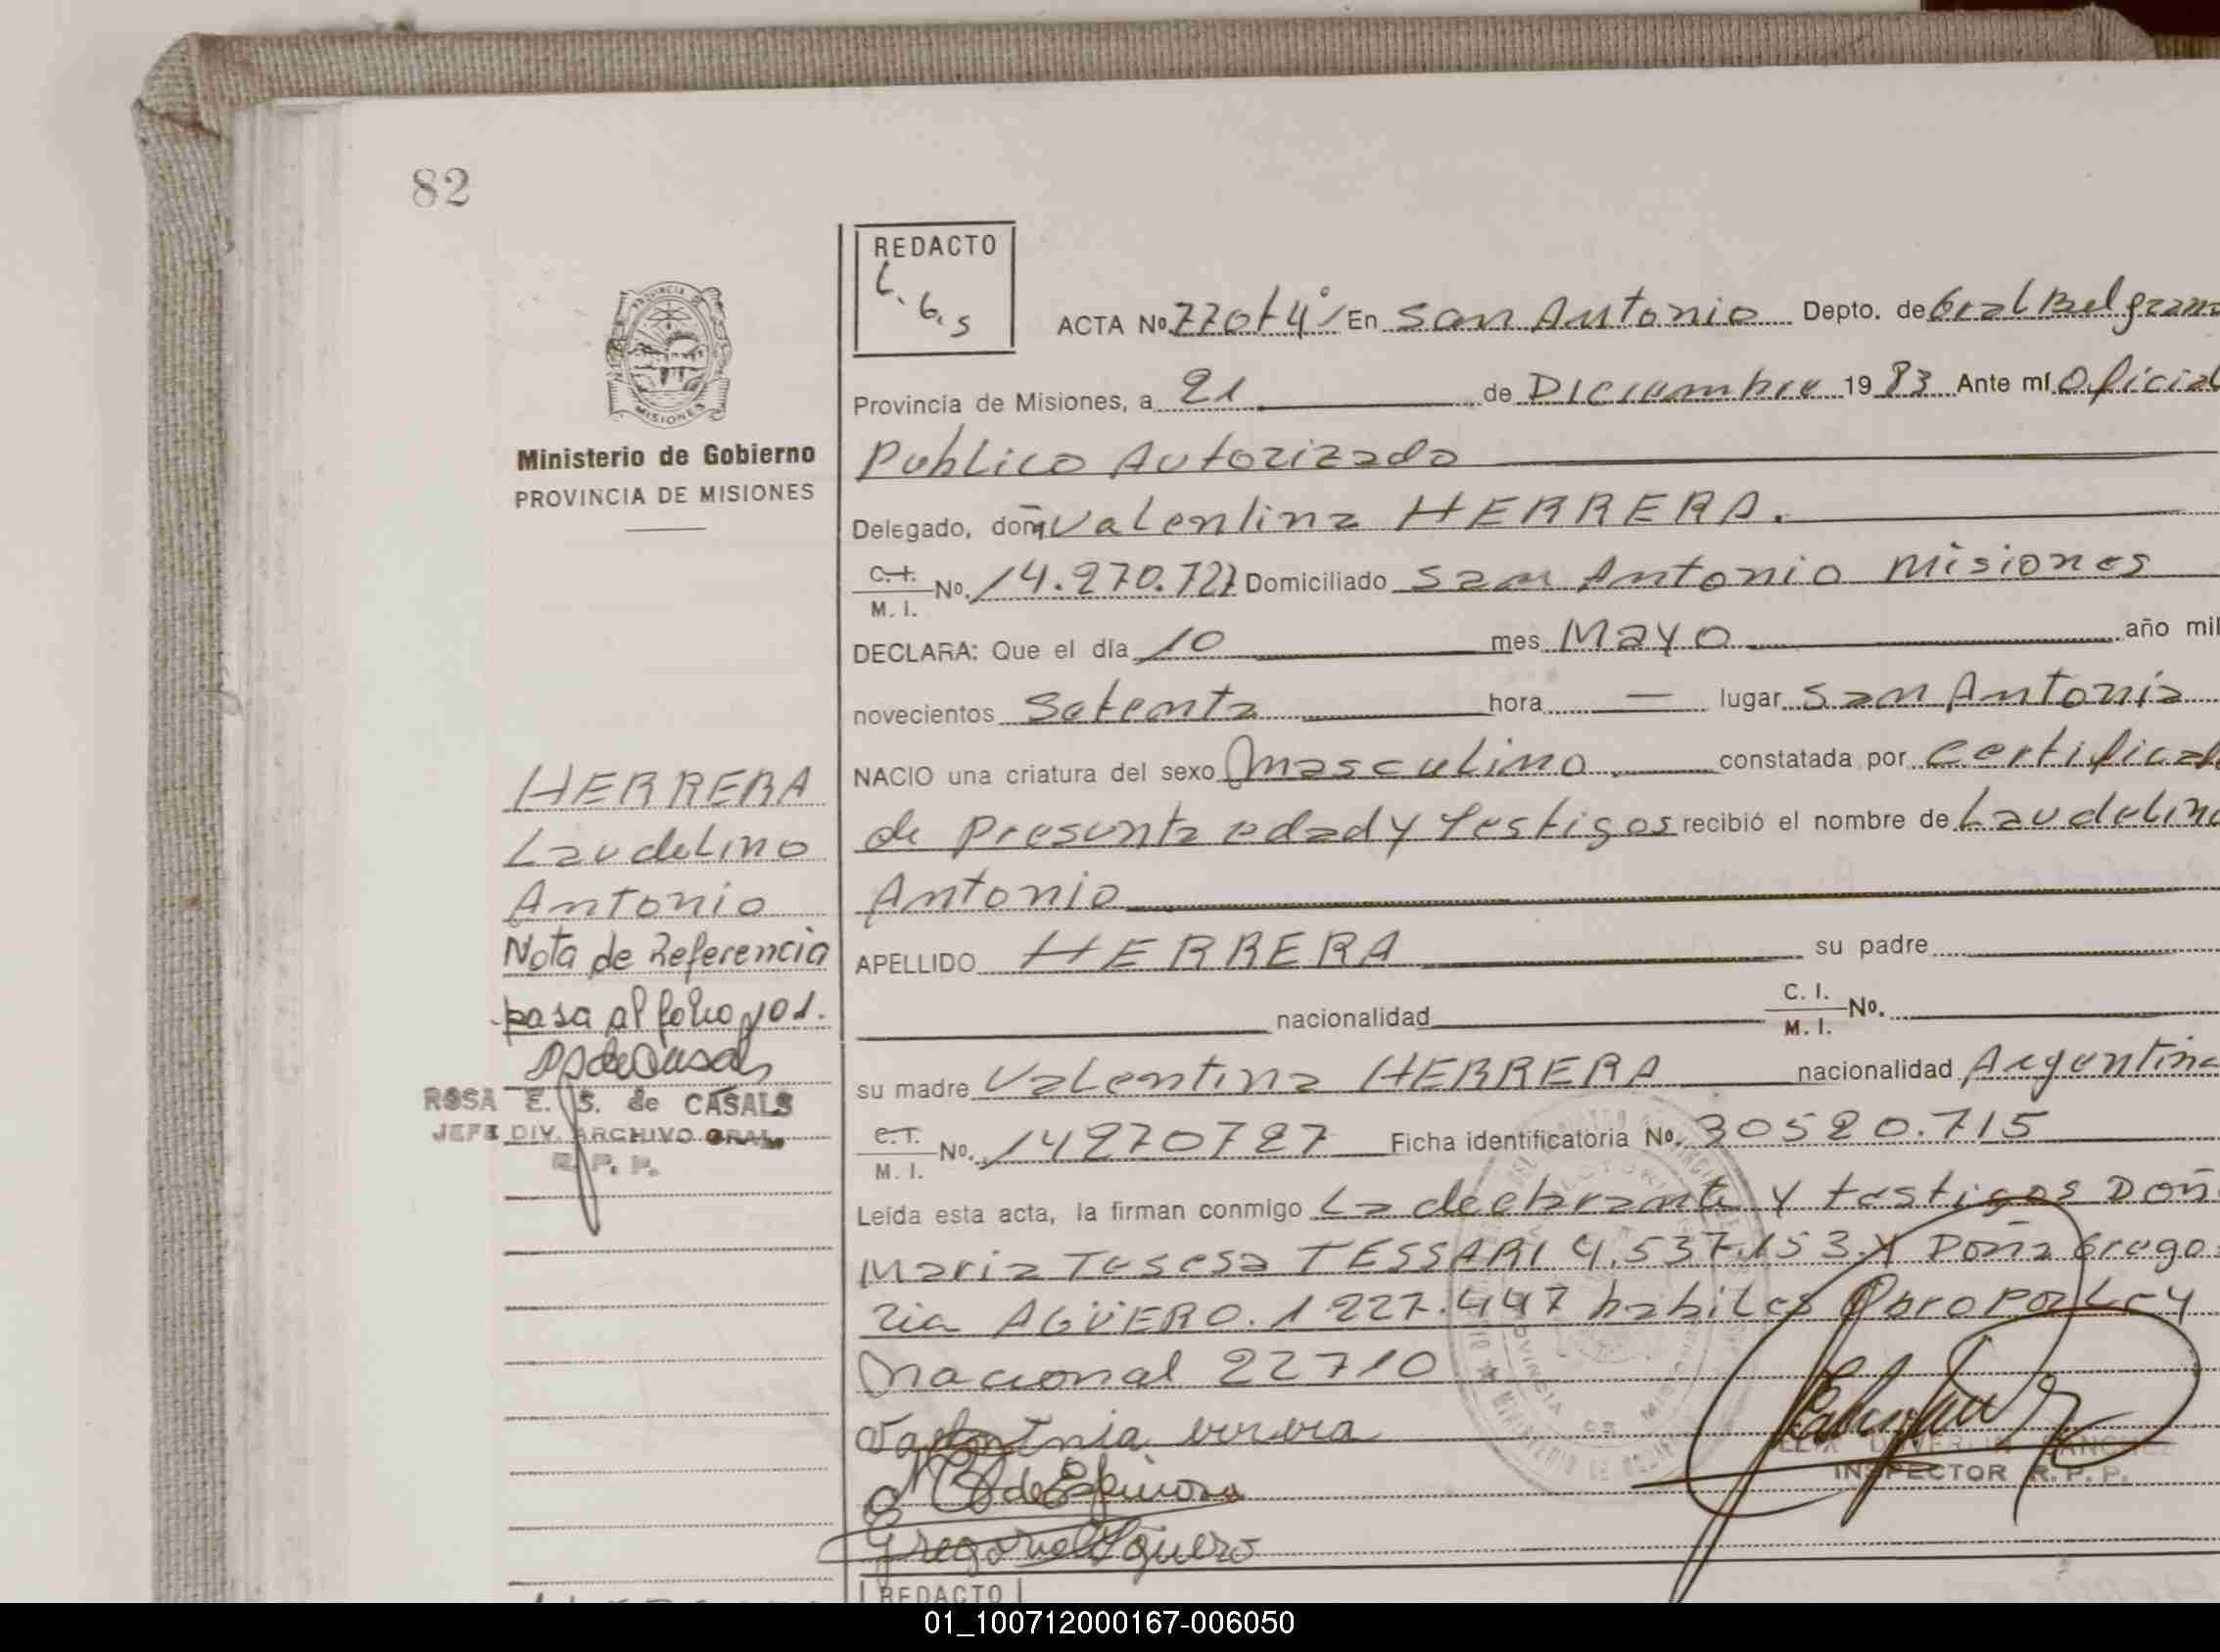 82
REDACTO
L.G.S
ACTA No. 770t4º/ En San Antonio Depto. de Gral Belgrano
Provincia de Misiones, a 21 de Diciembre 1983 Ante mí Oficial
Ministerio de Gobierno
PROVINCIA DE MISIONES
Publico Autorizado
Delegado, doña Valentina HERRERA.
C.I. M. I. No. 14.270.727 Domiciliado San Antonio Misiones
DECLARA: Que el día 10 mes Mayo año mil
novecientos Setenta hora — lugar San Antonio
NACIO una criatura del sexo Masculino constatada por Certificado
de Presunta edad y Testigos recibió el nombre de Laudelino
Antonio
APELLIDO HERRERA su padre
nacionalidad C. I. M. I. No.
su madre Valentina HERRERA nacionalidad Argentina
C.I. M. I. No. 14270727 Ficha identificatoria No. 30520.715
Leída esta acta, la firman conmigo La declarante y testigos Doña
Maria Teresa TESSARI 4.537.153 y Doña Grego
ria AGÜERO. 1.227.447 habiles Obro por Ley
Nacional 22710
HERRERA
Laudelino
Antonio
Nota de Referencia
pasa al folio 101.
ROSA E. S. de CASALS
JEFE DIV. ARCHIVO GRAL.
R. P. P.
de Espinosa
Gregoria Aguero
INSPECTOR R. P. P.
REDACTO
01_100712000167-006050